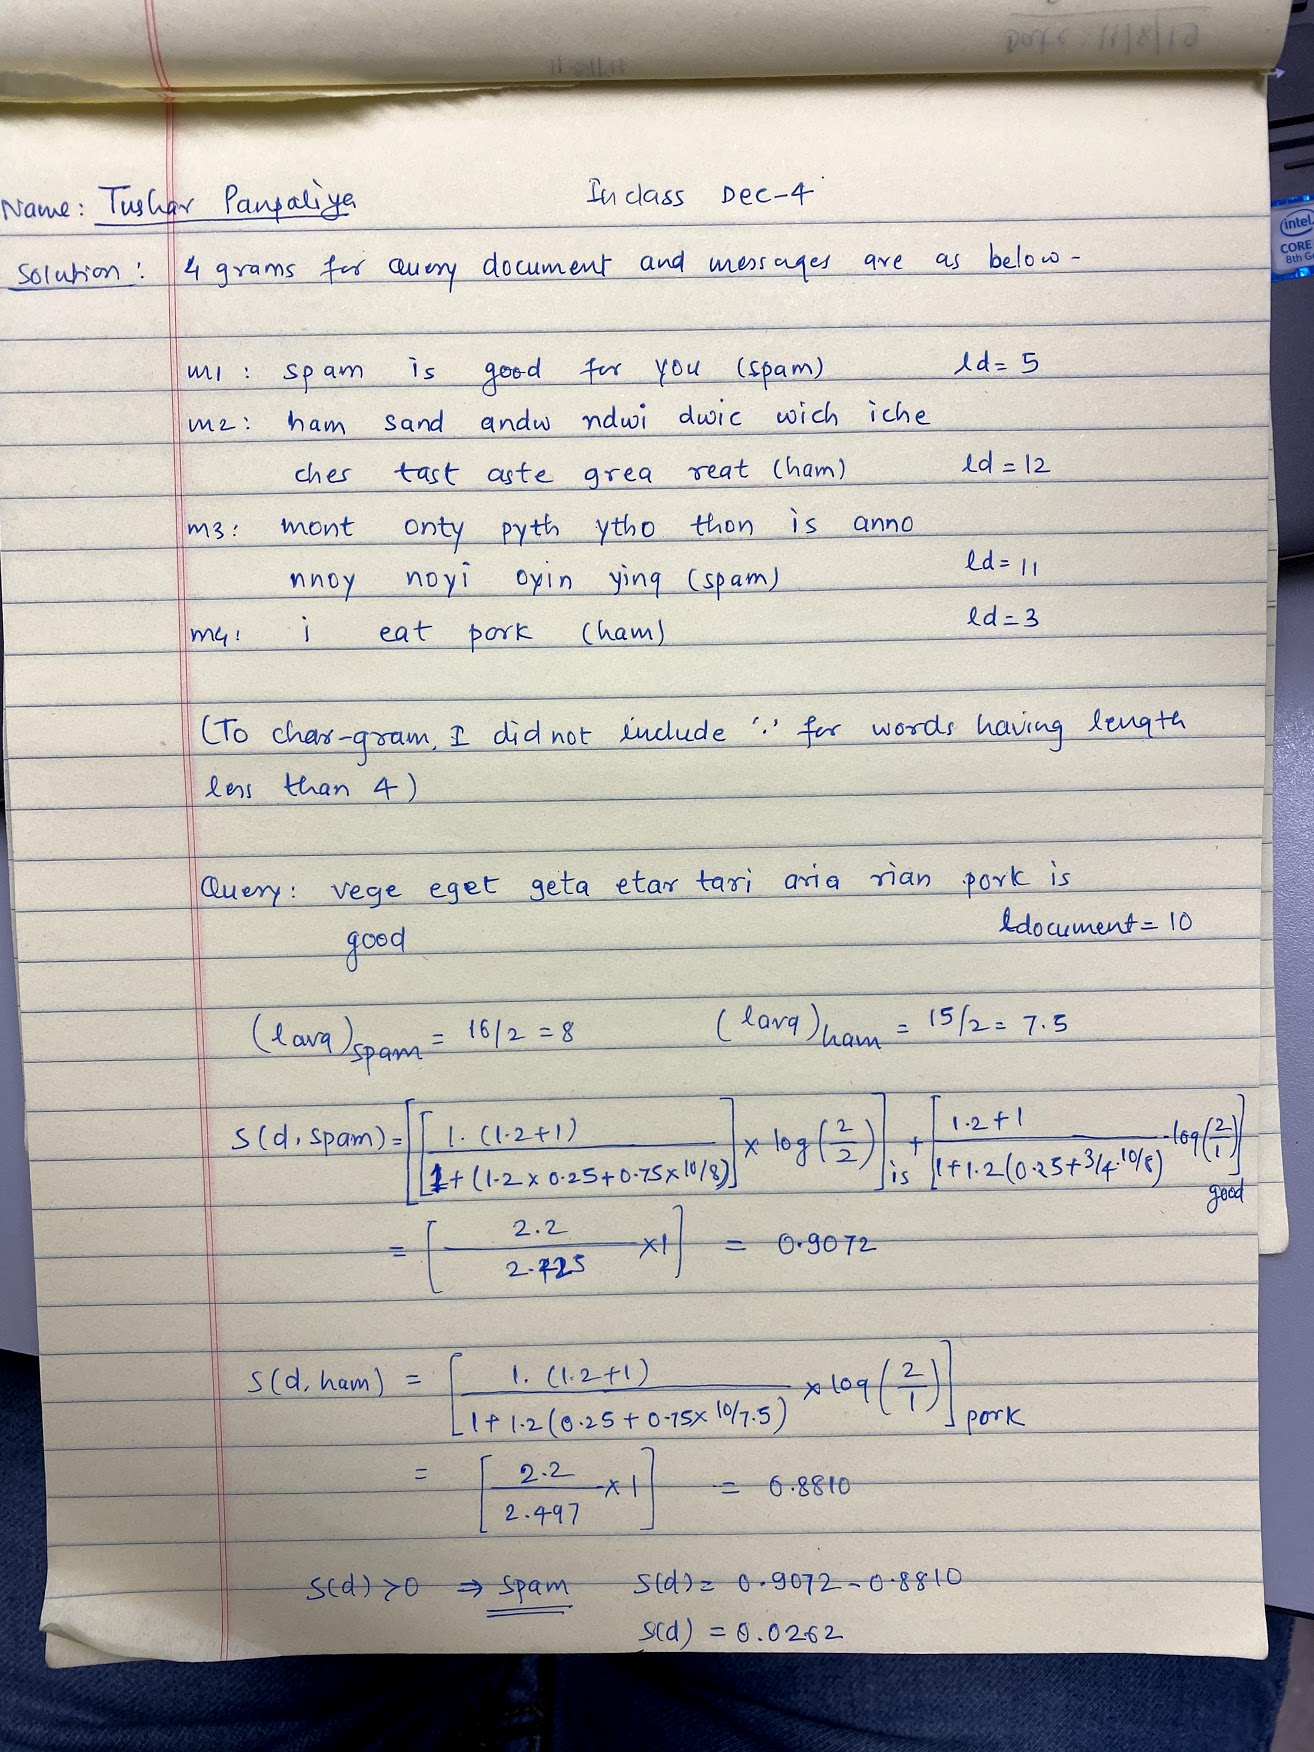 Date: 11/8/19
Name: Tushar Panpaliya
In class Dec-4
intel
CORE
8th Ge
Solution: 4 grams for Query document and messages are as below-
m1: spam is good for you (spam) ld= 5
m2: ham sand andw ndwi dwic wich iche
ches tast aste grea reat (ham) ld = 12
m3: mont onty pyth ytho thon is anno
nnoy noyi oyin ying (spam) ld= 11
m4: i eat pork (ham) ld=3
(To char-gram, I did not include '.' for words having length
less than 4)
Query: vege eget geta etar tari aria rian pork is
good ldocument= 10
(lavg)spam = 16/2 = 8 (lavg)ham = 15/2 = 7.5
S(d, spam) = [[1. (1.2+1) / 1+(1.2 x 0.25+0.75x10/8)] x log(2/2)]is + [1.2+1 / 1+1.2(0.25+3/4.10/8) . log(2/1)]good
= [2.2 / 2.425 x1] = 0.9072
S(d, ham) = [1. (1.2+1) / 1+1.2(0.25+0.75x 10/7.5) x log(2/1)]pork
= [2.2 / 2.497 x 1] = 0.8810
S(d) >0 ⇒ spam S(d)= 0.9072-0.8810
S(d) = 0.0262